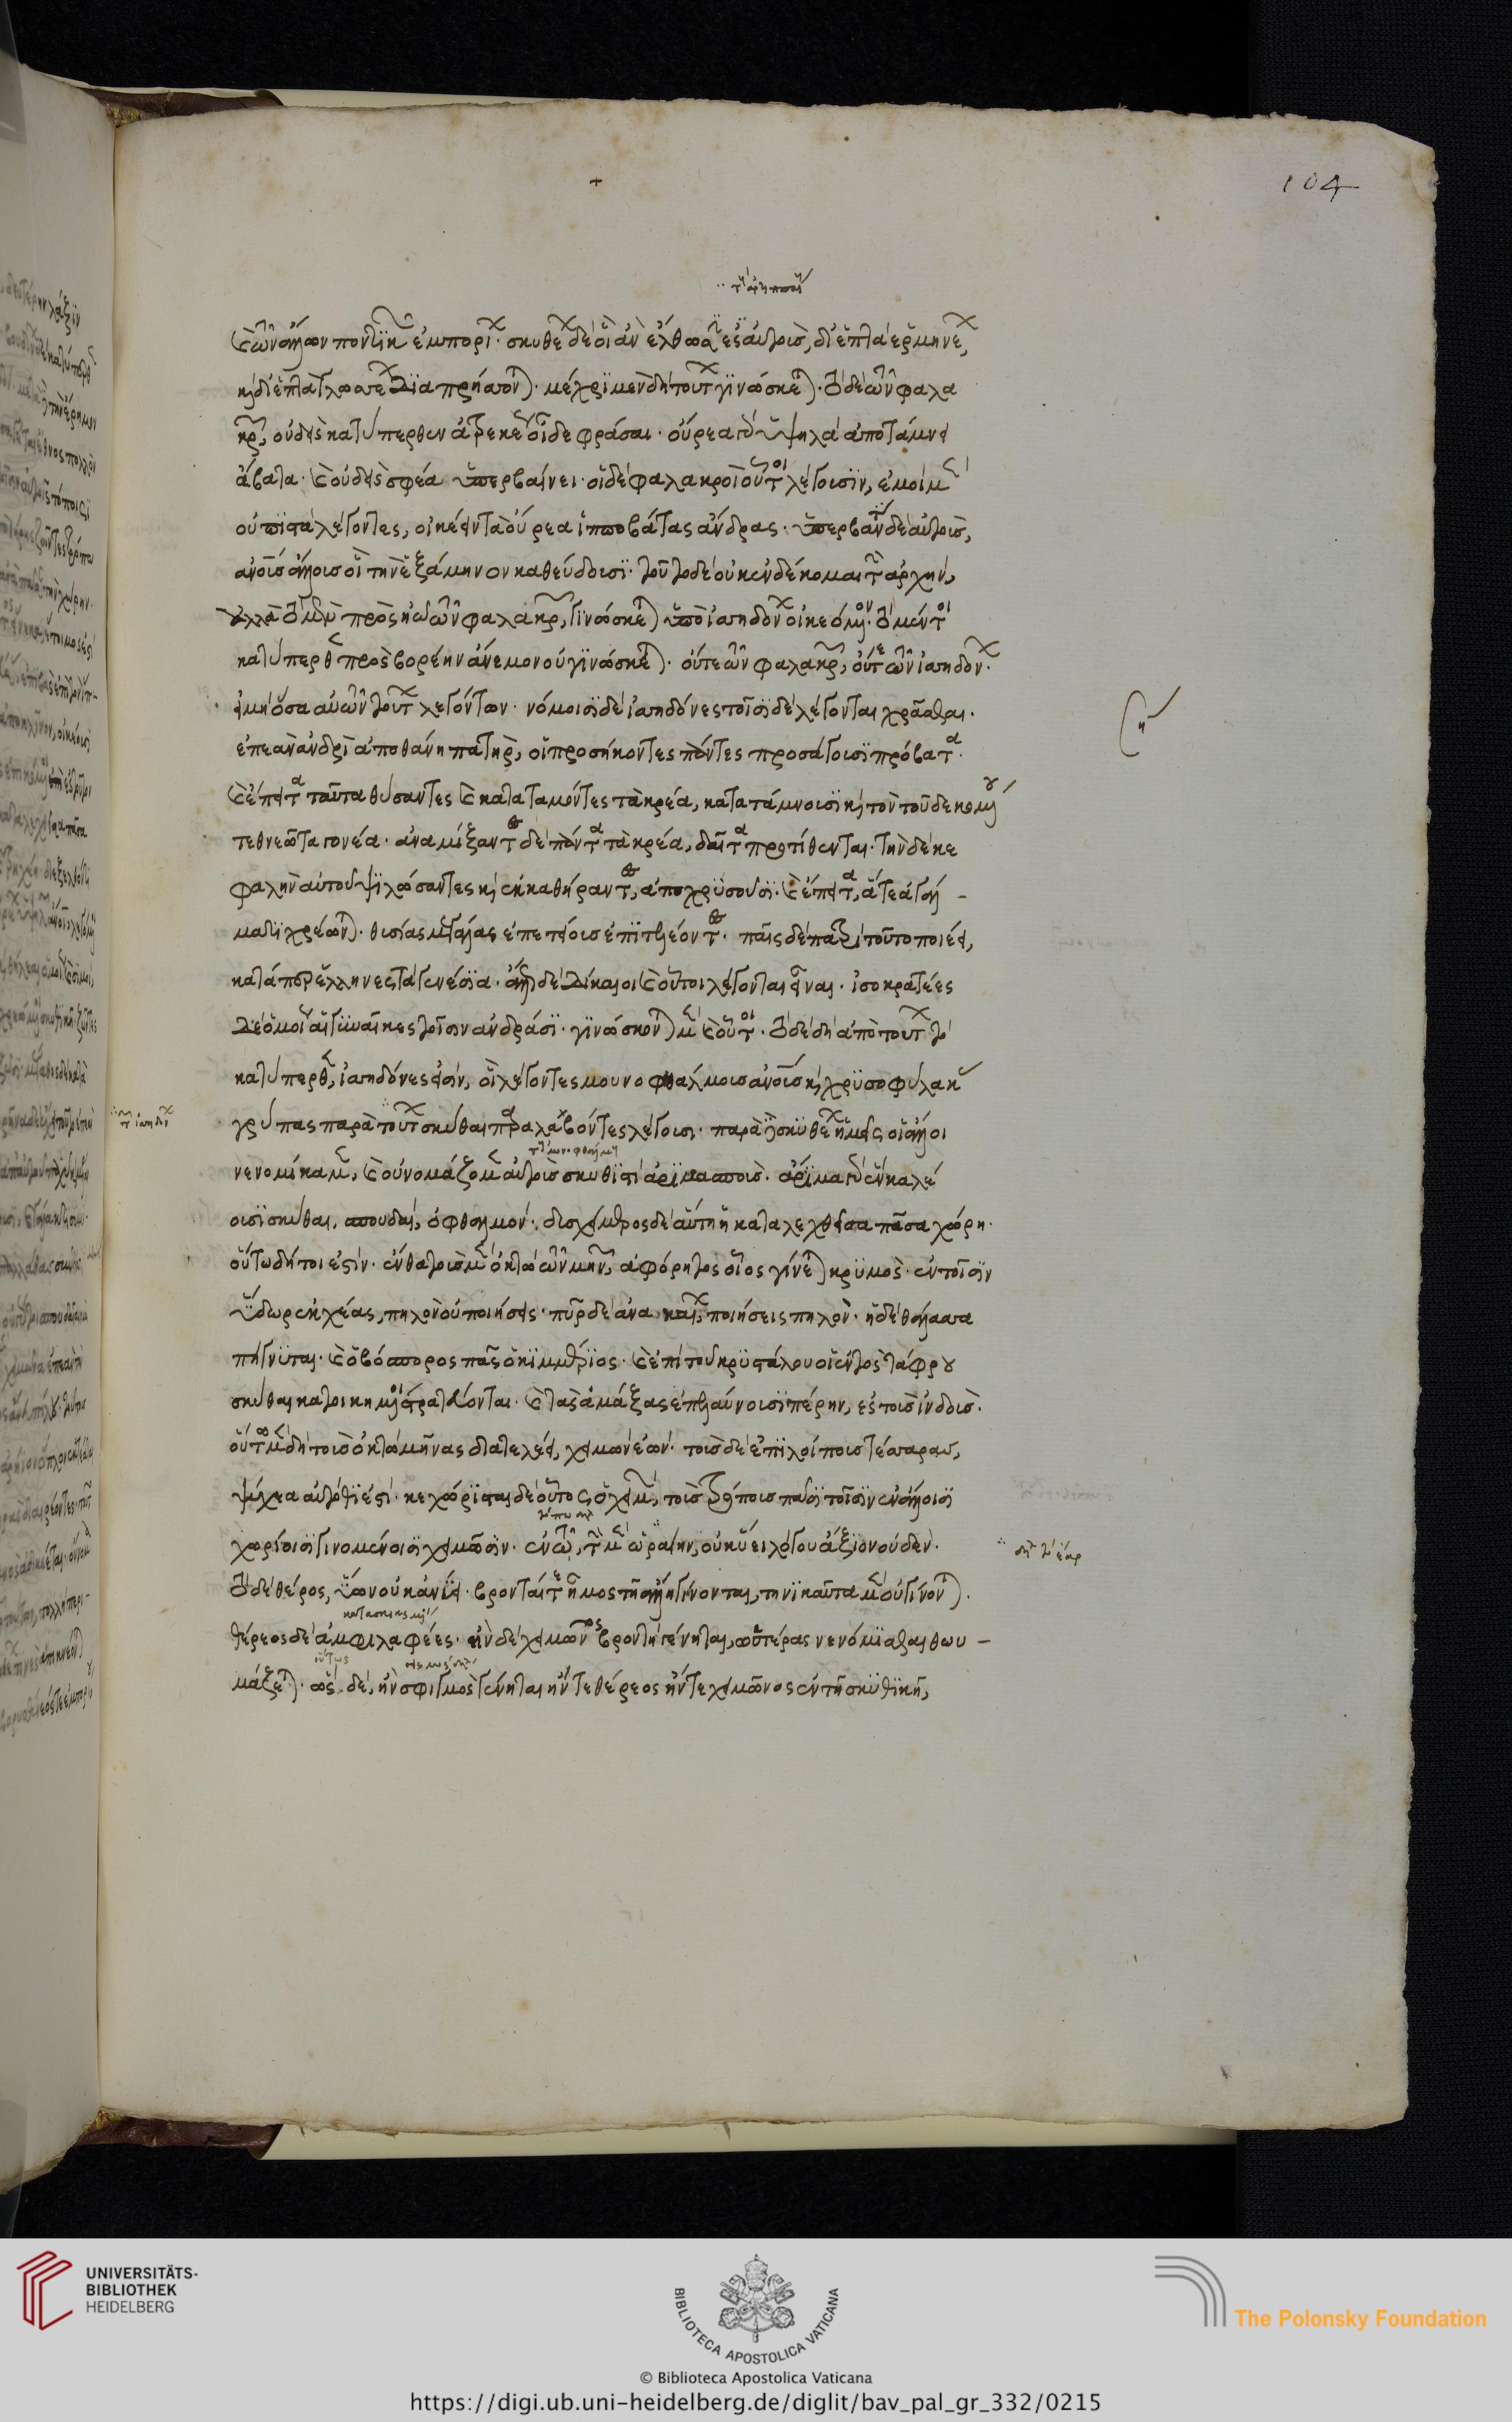 104
τῶν ἀρημπαίων
καὶ τῶν ἄλλων ποντϊκῶν ἐμπορίων· σκυθέων δὲ οἳ ἂν ἔλθωσϊν ἐς αὐτοὺς, δι' ἑπτὰ ἑρμηνέων,
καὶ δι' ἑπτὰ γλωσσέων διαπρήσσονται· μέχρϊ μὲν δὴ τουτέων γϊνώσκεται· τὸ δὲ τῶν φαλα
κρῶν, οὐδεὶς κατύπερθεν ἀτρεκέως οἶδε φράσαι· οὔρεα γὰρ ὑψηλὰ ἀποτάμνει
ἄβατα· καὶ οὐδεὶς σφέα ὑπερβαίνει· οἱ δὲ φαλακροὶ οὗτοι λέγουσϊν, ἐμοὶ μὲν
οὐ πϊστὰ λέγοντες, οἰκέειν τὰ οὔρεα ἱπποβάτας ἄνδρας· ὑπερβάντϊ δὲ αὐτοὺς,
ἀνοὺς ἄλλους οἳ τὴν ἑξάμηνον καθεύδουσϊ· τοῦτο δὲ οὐκ ἐνδέκομαι τὴν ἀρχήν,
ἀλλὰ τὸ μὲν πρὸς ἠῶ τῶν φαλακρῶν, γϊνώσκεται ὑπὸ ἰσηδόνων οἰκεόμενον· τὸ μέντοι
κατύπερθεν πρὸς βορέην ἄνεμον οὐ γϊνώσκεται· οὔτε τῶν φαλακρῶν, οὔτε τῶν ἰσηδόνων·
εἰ μὴ ὅσα αὐτῶν τουτέων λεγόντων· νόμοισϊ δὲ ἰσηδόνες τοῖσϊδε λέγονται χρᾶσθαι·
ἐπεὰν ἀνδρὶ ἀποθάνη πατὴρ, οἱ προσήκοντες πάντες προσάγουσϊ πρόβατα·
καὶ ἔπειτα ταῦτα θύσαντες καὶ καταταμόντες τὰ κρέα, κατατάμνουσϊ καὶ τὸν τοῦ δεκομένου
τεθνεῶτα γονέα· ἀναμίξαντες δὲ πάντα τὰ κρέα, δαῖτα προτίθενται· τὴν δὲ κε
φαλὴν αὐτοῦ ψϊλώσαντες καὶ ἐκκαθήραντες, ἀποχρϋσοῦσϊ· καὶ ἔπειτα, ἅτε ἀγάλ-
ματϊ χρέωνται· θυσίας μεγάλας ἐπετείους ἐπϊτελέοντες· παῖς δὲ πατρὶ τοῦτο ποιέει,
κατάπερ ἕλληνες τὰ γενέσϊα· ἄλλως δὲ δίκαιοι καὶ οὗτοι λέγονται εἶναι· ἰσοκρατέες
δὲ ὁμοίως αἱ γϋναῖκες τοῖσιν ἀνδράσϊ· γϊνώσκονται μὲν καὶ οὗτοι· τὸ δὲ δὴ ἀπὸ τουτέων τὸ
κατύπερθεν, ἰσηδόνες εἰσὶν, οἱ λέγοντες μουνοφθάλμους ἀνοὺς καὶ χρϋσοφύλακας
τῶν ἰσηδόνων
γρύπας· παρὰ τουτέων σκύθαι παραλαβόντες λέγουσι· παρὰ δὲ σκϋθέων ἡμεῖς οἱ ἄλλοι
τοὺς μονοφθάλμους
νενομίκαμεν, καὶ οὐνομάζομεν αὐτοὺς σκυθϊστὶ ἀρϊμασποὺς· ἄρϊμα γὰρ ἓν καλέ
ουσϊ σκύθαι, σποῦ δὲ, ὀφθαλμόν· δυσχείμερος δὲ αὕτη ἡ καταλεχθεῖσα πᾶσα χώρη·
οὕτω δή τοι ἐστὶν· ἔνθα τοὺς μὲν ὀκτὼ τῶν μηνῶν, ἀφόρητος οἷος γίνεται κρϋμὸς· ἐν τοῖσϊν
ὕδωρ ἐκχέας, πηλὸν οὐ ποιήσεις· πῦρ δὲ ἀνακαίων, ποιήσεις πηλὸν· ἡ δὲ θάλασσα
πήγνϋται· καὶ ὁ βόσπορος πᾶς ὁ κϊμμέρϊος· καὶ ἐπὶ τοῦ κρϋστάλλου οἱ ἐντὸς τάφρου
σκύθαι κατοικημένοι στρατεύονται· καὶ τὰς ἁμάξας ἐπελαύνουσϊ πέρην, ἐς τοὺς ἰνδοὺς·
οὕτως μὲν δὴ τοὺς ὀκτὼ μῆνας διατελέει, χειμὼν ἐών· τοὺς δὲ ἐπϊλοίπους τέσσαρας,
ψύχεα αὐτόθϊ ἐστὶ· κεχώρϊσται δὲ οὗτος, ὁ χειμὼν, τοὺς τρόπους πᾶσϊ τοῖσϊν ἐν ἄλλοισϊ
χωρίοισϊ γινομένοισϊ χειμῶσϊν· ἐν τῶ, τὴν μὲν ὡραίην, οὐκ ὕει λόγου ἄξϊον οὐδὲν·
τὸ ἔαρ
τὸ δὲ θέρος, ὕων οὐκ ἀνίει· βρονταί τε ἦμος τῆ ἄλλη γίνονται, τηνϊκαῦτα μὲν οὐ γίνονται·
θέρεος δὲ ἀμφιλαφέες· ἢν δὲ χειμῶνος βροντὴ γένηται, ὡς τέρας νενόμϊσται θωυ-
οὕτως
μάζεται· ὣς δὲ, ἢν σφι σεισμὸς γένηται ἤν τε θέρεος ἤν τε χειμῶνος ἐν τῆ σκϋθϊκῆ,
UNIVERSITÄTS-
BIBLIOTHEK
HEIDELBERG
BIBLIOTECA APOSTOLICA VATICANA
The Polonsky Foundation
© Biblioteca Apostolica Vaticana
https://digi.ub.uni-heidelberg.de/diglit/bav_pal_gr_332/0215